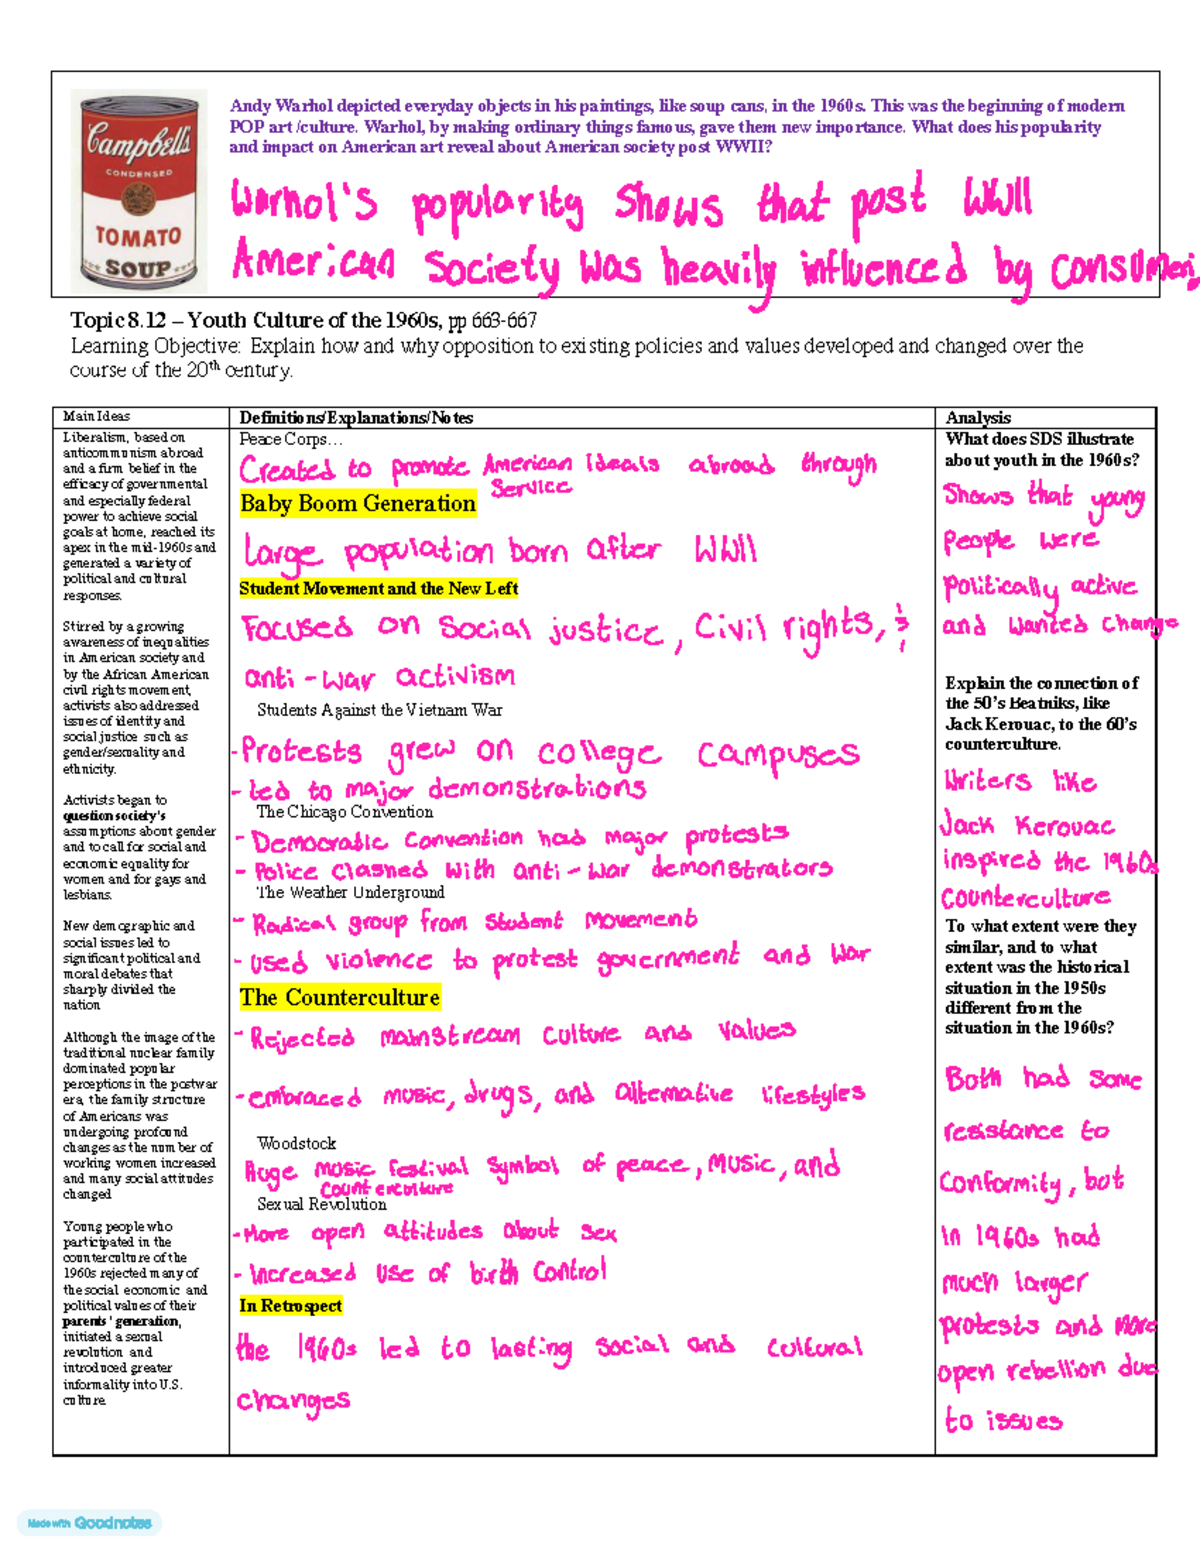 Campbell's
CONDENSED
TOMATO
SOUP
Andy Warhol depicted everyday objects in his paintings, like soup cans, in the 1960s. This was the beginning of modern
POP art /culture. Warhol, by making ordinary things famous, gave them new importance. What does his popularity
and impact on American art reveal about American society post WWII?
Warhol's popularity shows that post WWII
American Society was heavily influenced by
Topic 8.12 – Youth Culture of the 1960s, pp 663-667
Learning Objective: Explain how and why opposition to existing policies and values developed and changed over the
course of the 20th century.
Main Ideas
Liberalism, based on
anticommunism abroad
and a firm belief in the
efficacy of governmental
and especially federal
power to achieve social
goals at home, reached its
apex in the mid-1960s and
generated a variety of
political and cultural
responses.
Stirred by a growing
awareness of inequalities
in American society and
by the African American
civil rights movement,
activists also addressed
issues of identity and
social justice such as
gender/sexuality and
ethnicity.
Activists began to
question society's
assumptions about gender
and to call for social and
economic equality for
women and for gays and
lesbians.
New demographic and
social issues led to
significant political and
moral debates that
sharply divided the
nation
Although the image of the
traditional nuclear family
dominated popular
perceptions in the postwar
era, the family structure
of Americans was
undergoing profound
changes as the number of
working women increased
and many social attitudes
changed
Young people who
participated in the
counterculture of the
1960s rejected many of
the social economic and
political values of their
parents' generation,
initiated a sexual
revolution and
introduced greater
informality into U.S.
culture.
Definitions/Explanations/Notes
Peace Corps…
Created to promote American Ideals abroad through
Service
Baby Boom Generation
Large population born after WWII
Student Movement and the New Left
Focused on Social justice, Civil rights, &
anti-war activism
Students Against the Vietnam War
-Protests grew on college campuses
- led to major demonstrations
The Chicago Convention
- Democratic Convention had major protests
- Police clashed with anti-war demonstrators
The Weather Underground
- Radical group from student movement
- used violence to protest government and war
The Counterculture
- Rejected mainstream culture and values
-embraced music, drugs, and alternative lifestyles
Woodstock
Huge music festival symbol of peace, music, and
counterculture
Sexual Revolution
-More open attitudes about sex
- Increased use of birth control
In Retrospect
the 1960s led to lasting social and cultural
changes
Analysis
What does SDS illustrate
about youth in the 1960s?
Shows that young
People were
Politically active
and wanted change
Explain the connection of
the 50's Beatniks, like
Jack Kerouac, to the 60's
counterculture.
Writers like
Jack Kerouac
inspired the 1960s
Counterculture
To what extent were they
similar, and to what
extent was the historical
situation in the 1950s
different from the
situation in the 1960s?
Both had some
resistance to
conformity, but
In 1960s had
much larger
protests and more
open rebellion due
to issues
Made with Goodnotes